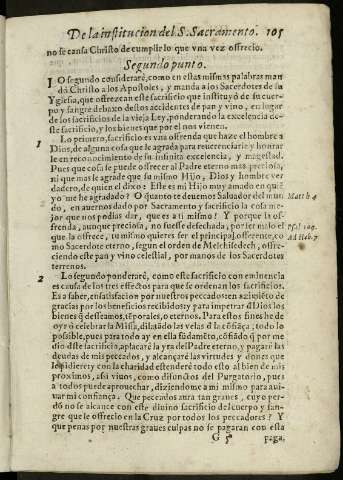 De la institucion del S. Sacramento. 105
no se cansa Christo de cumplir lo que vna vez ofrecio.
Segundo punto.
LO segundo considerarè, como en estas mismas palabras man
dò Christo a los Apostoles, y manda a los Sacerdotes de su
Yglesia, que ofrezcan este sacrificio que instituyò de su cuer-
po y sangre debaxo destos accidentes de pan y vino, en lugar
de los sacrificios de la vieja Ley, ponderando la excelencia de-
ste sacrificio, y los bienes que por el nos vienen.
1 Lo primero, sacrificio es vna ofrenda que haze el hombre a
Dios, de alguna cosa que le agrada para reuerenciarle y honrar
le en reconocimiento de su infinita excelencia, y magestad.
Pues que cosa se puede ofrecer al Padre eterno mas preciosa,
ni que mas le agrade que su mismo Hijo, Dios y hombre ver
dadero, de quien el dixo: Este es mi Hijo muy amado en quiē
yo me he agradado? O quanto te deuemos Saluador del mun Matth 4
do, en auernos dado por Sacramento y sacrificio la cosa me-
jor que nos podias dar, que es a ti mismo! Y porque la of-
renda, aunque preciosa, no fuesse desechada, por ser malo el Psal 109.
que la ofrece, tu mismo quieres ser el principal oferente, co Ad Heb. 7
mo Sacerdote eterno, segun el orden de Melchisedech, ofre-
ciendo este pan y vino celestial, por manos de los Sacerdotes
terrenos.
2 Lo segundo ponderarè, como este sacrificio con eminencia
es causa de los tres effectos para que se ordenan los sacrificios.
Es a saber, en satisfacion por nuestros peccados, en azimiēto de
gracias por los beneficios recibidos, y para impetrar d̄ Dios los
bienes q̄ desseamos, tēporales, o eternos. Para estos fines he de
oyr o celebrar la Missa, dilatādo las velas d̄ la cōfiāça, todo lo
possible, pues para todo ay en ella fūdamēto, cōfiādo q̄ por me
dio deste sacrificio, aplacarè la yra del Padre eterno, y pagarè las
deudas de mis peccados, y alcançarè las virtudes y dones que
le pidiere: y con la charidad estenderè todo esto a bien de mis
proximos, assi viuos, como disunctos del Purgatorio, pues
a todos puede aprouechar, diziendome a mi mismo para aui-
uar mi confiança. Que peccados aura tan graues, cuyo per-
dō no se alcance con este diuino sacrificio del cuerpo y san-
gre que le ofrecio en la Cruz por todos los peccadores? Y
que penas por nuestras graues culpas no se pagaran con esta
G 5 paga,